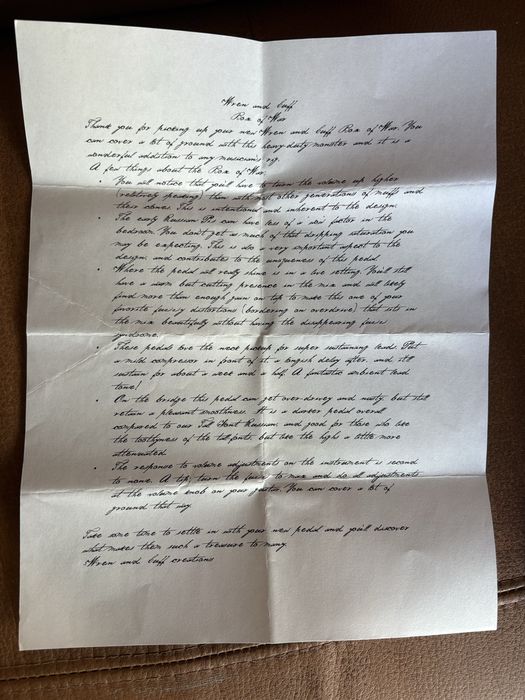 Wren and Cuff
Box of War
Thank you for picking up your new Wren and Cuff Box of War. You
can cover a lot of ground with this heavy duty monster and it is a
wonderful addition to any musician's rig.
A few things about the Box of War:
• You will notice that you'll have to turn the volume up higher
(relatively speaking) than with most other generations of muffs and
their clones. This is intentional and inherent to the design.
• The early Russian Pi's can have less of a wow factor in the
bedroom. You don't get as much of that dripping saturation you
may be expecting. This is also a very important aspect to the
design, and contributes to the uniqueness of this pedal.
• Where the pedal will really shine is in a live setting. You'll still
have a warm but cutting presence in the mix and will likely
find more than enough gain on tap to make this one of your
favorite fuzzy distortions (bordering on overdrive) that sits in
the mix beautifully without having the disappearing fuzz
syndrome.
• These pedals love the neck pickup for super sustaining leads. Put
a mild compressor in front of it, a longish delay after, and it'll
sustain for about a week and a half. A fantastic ambient lead
tone!
• On the bridge this pedal can get over-drivey and nasty, but still
retain a pleasant smoothness. It is a darker pedal overall
compared to our Tall Font Russian, and good for those who like
the toothyness of the tall fonts, but like the highs a little more
attenuated.
• The response to volume adjustments on the instrument is second
to none. A tip, turn the fuzz to max and do all adjustments
at the volume knob on your guitar. You can cover a lot of
ground that way.
Take some time to settle in with your new pedal and you'll discover
what makes them such a treasure to many.
Wren and Cuff creations